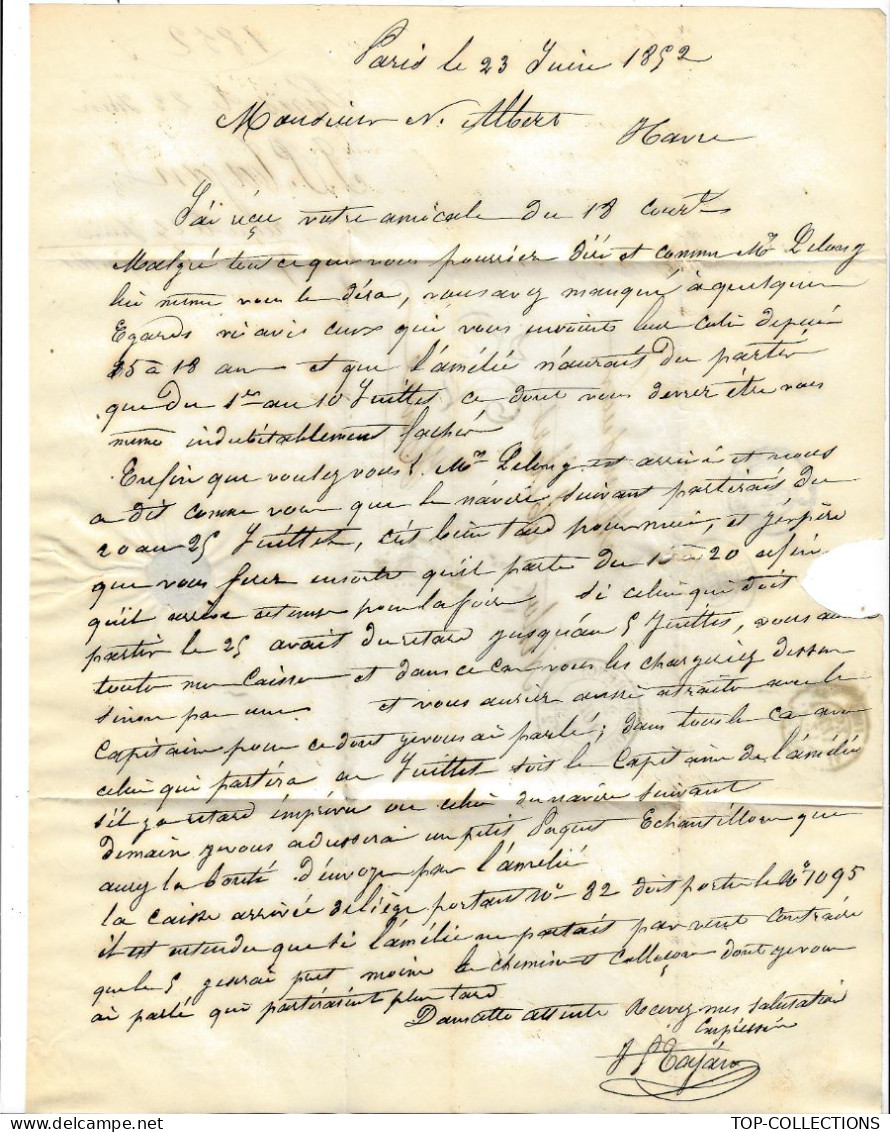 Paris le 23 Juin 1852
Monsieur N. Albert
Havre
J'ai réçu votre amicale du 18 court
Malgré tout ce que vous pourriez diré et comme Mr Delong
lui meme vous le dira, vous avez manqué à quelques
Egards vis avis ceux qui vous envoient leur colis depuis
15 à 18 ans et que l'amélie n'aurais du partir
que du 1er au 10 Juillet ce dont vous devez être vous
meme indubitablement faché
Enfin que voulez vous! Mr Delong est arrivé et nous
a dit comme vous que le navire suivant partirais du
20 au 25 Juillet, c'est bien tard pour moi, et j'éspère
que vous ferez ensorte qu'il parte du 15 à 20 afin
qu'il arrive a tems pour la foire Si celui qui doit
partir le 25 avait du retard jusqu'au 5 Juillet, vous
toute mes Caisses et dans ce cas vous les chargeriez dessus
sinon pas une et vous auriez aussi à traiter avec le
Capitaine pour ce dont je vous ai parlé; dans tous le cas avec
celui qui partira en Juillet soit le Capitaine de l'amélie
s'il y a retard imprévu ou celui du navire suivant
demain je vous adresserai un petit Paquet Echantillons que
aurez la bonté d'envoyer par l'amélié
la caisse arrivée de liège portant No 82 doit porter le No 1095
il est entendu que si l'amélie ne partait par vent contraire
que le 5 je serai pret moins le chemin et Callessons dont je vous
ai parlé qui partiraient plus tard
Dans cette attente Recevez mes salutations
Empréssées
J P Tajan
TOP-COLLECTIONS